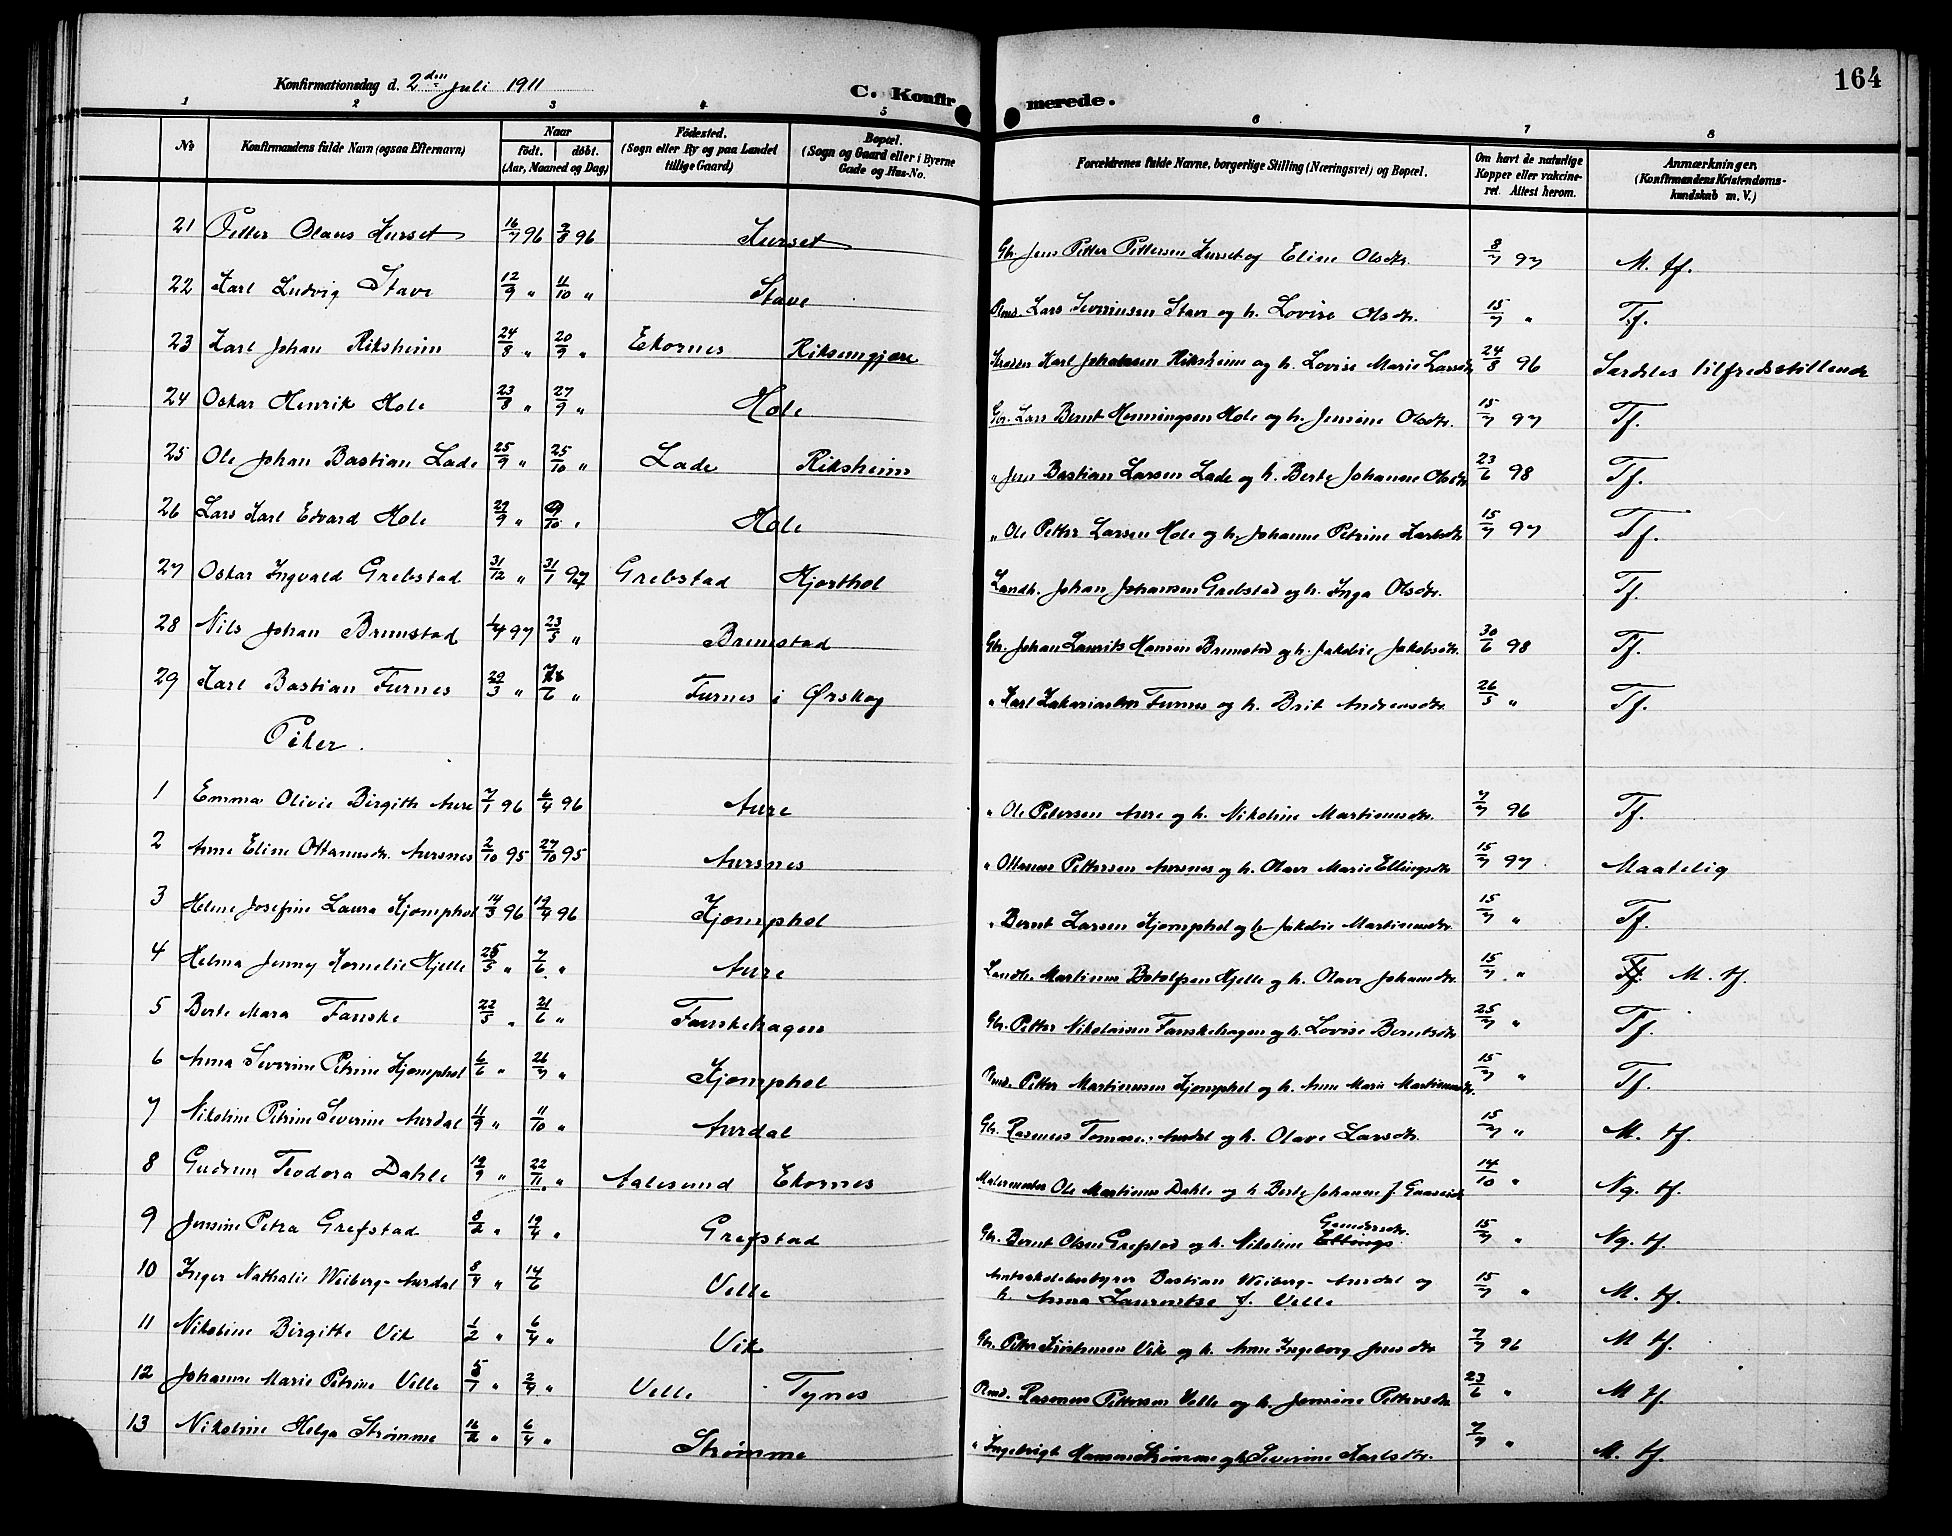 164
Konfirmationsdag d. 2den Juli 1911
C. Konfirmerede.
1 2 3 4 5 6 7 8
No
Konfirmandens fulde Navn (ogsaa Efternavn)
Naar
födt. döbt.
(Aar, Maaned og Dag)
Födested.
(Sogn eller By og paa Landet
tillige Gaard)
Bopæl.
(Sogn og Gaard eller i Byerne
Gade og Hus-No.
Forældrenes fulde Navne, borgerlige Stilling (Næringsvei) og Bopæl.
Om havt de naturlige
Kopper eller vaccine-
ret. Attest herom.
Anmærkninger,
(Konfirmandens Kristendoms-
kundskab m. V.)
21 Petter Olaus Kurset 16/7 96 2/8 96 Kurset Gbr. Jens Petter Pettersen Kurset og Eline Olsdtr. 8/7 97 M. tf.
22 Karl Ludvig Stave 12/9 " 4/10 " Stave Rmd. Lars Severinsen Stave og h. Lovise Olsdtr. 15/7 " Tf.
23 Karl Johan Riksheim 24/8 " 20/9 " Ekornes Riksemgjære Karl Johansen Riksheim og h. Lovise Marie Larsdtr 24/8 96 Særdeles tilfredsstillende
24 Oskar Henrik Hole 23/8 " 27/9 " Hole Gbr. Lars Bernt Henningsen Hole og h. Jensine Olsdtr. 15/7 97 Tf.
25 Ole Johan Bastian Lade 25/9 " 25/10 " Lade Riksheim " Jens Bastian Larsen Lade og h. Berte Johanne Olsdtr 23/6 98 Tf.
26 Lars Karl Edvard Hole 27/9 " /10 " Hole " Ole Petter Larsen Hole og h. Johanne Petrine Karlsdtr 15/7 97 Tf.
27 Oskar Ingvald Grebstad 31/12 " 31/1 97 Grebstad Hjorthol Landh. Johan Johansen Grebstad og h. Inga Olsdtr. Tf.
28 Nils Johan Brunstad 1/4 97 23/5 " Brunstad Gbr. Johan Laurits Hansen Brunstad og h. Jakobie Jakobsdtr. 30/6 98 Tf.
29 Karl Bastian Furnes 22/3 " /6 " Furnes i Ørskog " Karl Zakariassen Furnes og h. Brit Andreasdtr. 26/5 " Tf.
Piker.
1 Emma Olivie Birgitte Aure 7/1 96 6/4 96 Aure " Ole Petersen Aure og h. Nikoline Martinusdtr. 7/7 96 Tf.
2 Anne Eline Ottanusdtr. Aursnes 2/10 95 27/10 95 Aursnes " Ottanus Pettersen Aursnes og h. Olave Marie Ellingsdtr 15/7 97. Maatelig
3 Helene Josefine Laura Kjemphol 14/3 96 19/4 96 Kjemphol " Bernt Larsen Kjemphol og h. Jakobie Martinusdtr. 15/7 " Tf.
4 Helma Jenny Kornelie Hjelle 25/5 " 7/6 " Aure Landh. Martinus Botolfsen Hjelle og h. Olave Johansdtr. 15/7 " Tf. M. tf.
5 Berte Mara Fauske 22/5 " 21/6 " Fauskehagen Gbr. Petter Nikolaisen Fauskehagen og h. Lovise Berntsdtr 25/7 " Tf.
6 Anna Severine Petrine Kjemphol 6/6 " 26/7 " Kjemphol Rmd. Petter Martinussen Kjemphol og h. Anne Marie Martinusdtr. 15/7 " Tf.
7 Nikoline Petrine Severine Aurdal 11/9 " 11/10 " Aurdal Gbr. Rasmus Tomass. Aurdal og h. Olave Larsdtr. 15/7 " M. tf.
8 Gudrun Teodora Dahle 19/9 " 22/11 " Aalesund Ekornes Malermester Ole Martinus Dahle og h. Berte Johanne f. 14/10 " Ng. tf.
9 Jensine Petra Grefstad 8/2 " 19/4 " Grefstad Gbr. Bernt Olsen Grefstad og h. Nikoline Ellings Gundersdtr. 15/7 " Ng. tf.
10 Inger Nathalie Weiberg-Aurdal 8/4 " 14/6 Velle Amtsskolebestyrer Bastian Weiberg-Aurdal og
h. Anna Laurentse f. Velle 15/7 " M. tf.
11 Nikoline Birgitte Vik 1/2 " 6/4 " Vik Gbr. Petter Kristensen Vik og h. Anne Ingeborg Jensdtr 7/7 96 M tf.
12 Johanne Marie Petrine Velle 5/7 " 2/9 " Velle Tynes Rmd. Rasmus Pettersen Velle og h. Jensine Pettersdtr 23/6 " M tf.
13 Nikoline Helga Strømme 16/2 " 6/4 " Strømme " Ingebrigt Hansen Strømme og h. Severine Karlsdtr. 7/7 " M. tf.